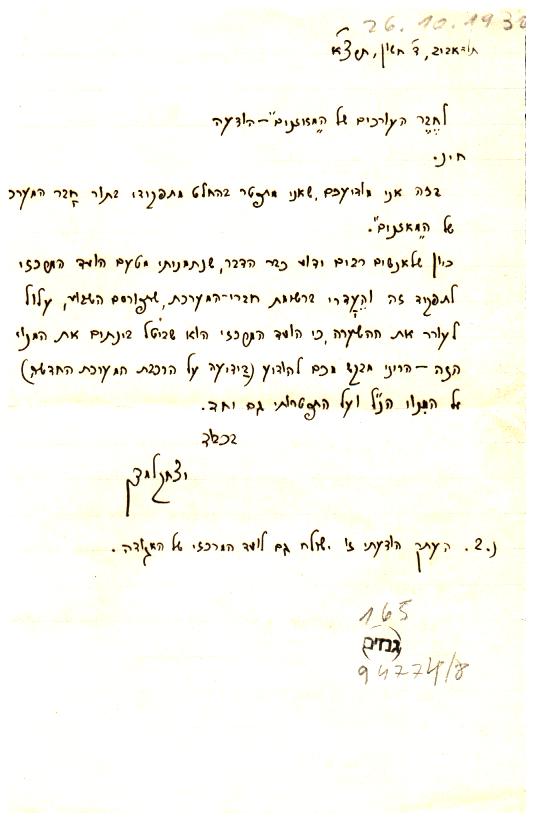 26.10.193
תל-אביב, ד' חשון, תרצ"א
לחֶבֶר העורכים של "המאזנים" – הודעה
ח.נ.
בזה אני מודיעכם, שאני מתפטר בהחלט מתפקידי בתור חָבר המערכ
של "המאזנים".
כיון שלאנשים רבים ידוע כבר הדבר, שנתמניתי מטעם הועד המרכזי
לתפקיד זה והֶעָדרי ברשימת חברי-המערכת, שתפורסם השבוע, עלול
לעורר את ההשערה, כי הועד המרכזי הוא שביטל בינתים את המנוי
הזה – הריני מבקש מכם להודיע (בידיעה על הרכבת המערכת החדשה)
על המִנוי הנ"ל ועל התפטרותי גם יחד.
בכבוד
יצחק למדן
נ.ב. העתק הודעתי זו ישולח גם לועד המרכזי של האגודה.
165
גנזים
94774/8